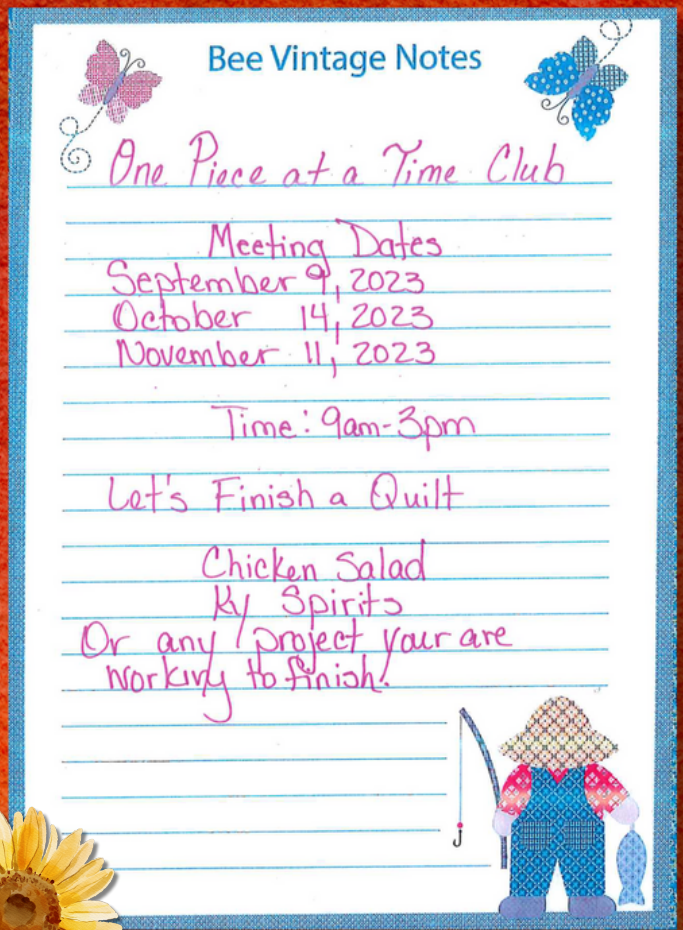 Bee Vintage Notes
One Piece at a Time Club
Meeting Dates
September 9, 2023
October 14, 2023
November 11, 2023
Time: 9am-3pm
Let's Finish a Quilt
Chicken Salad
Ky Spirits
Or any project your are
working to finish!